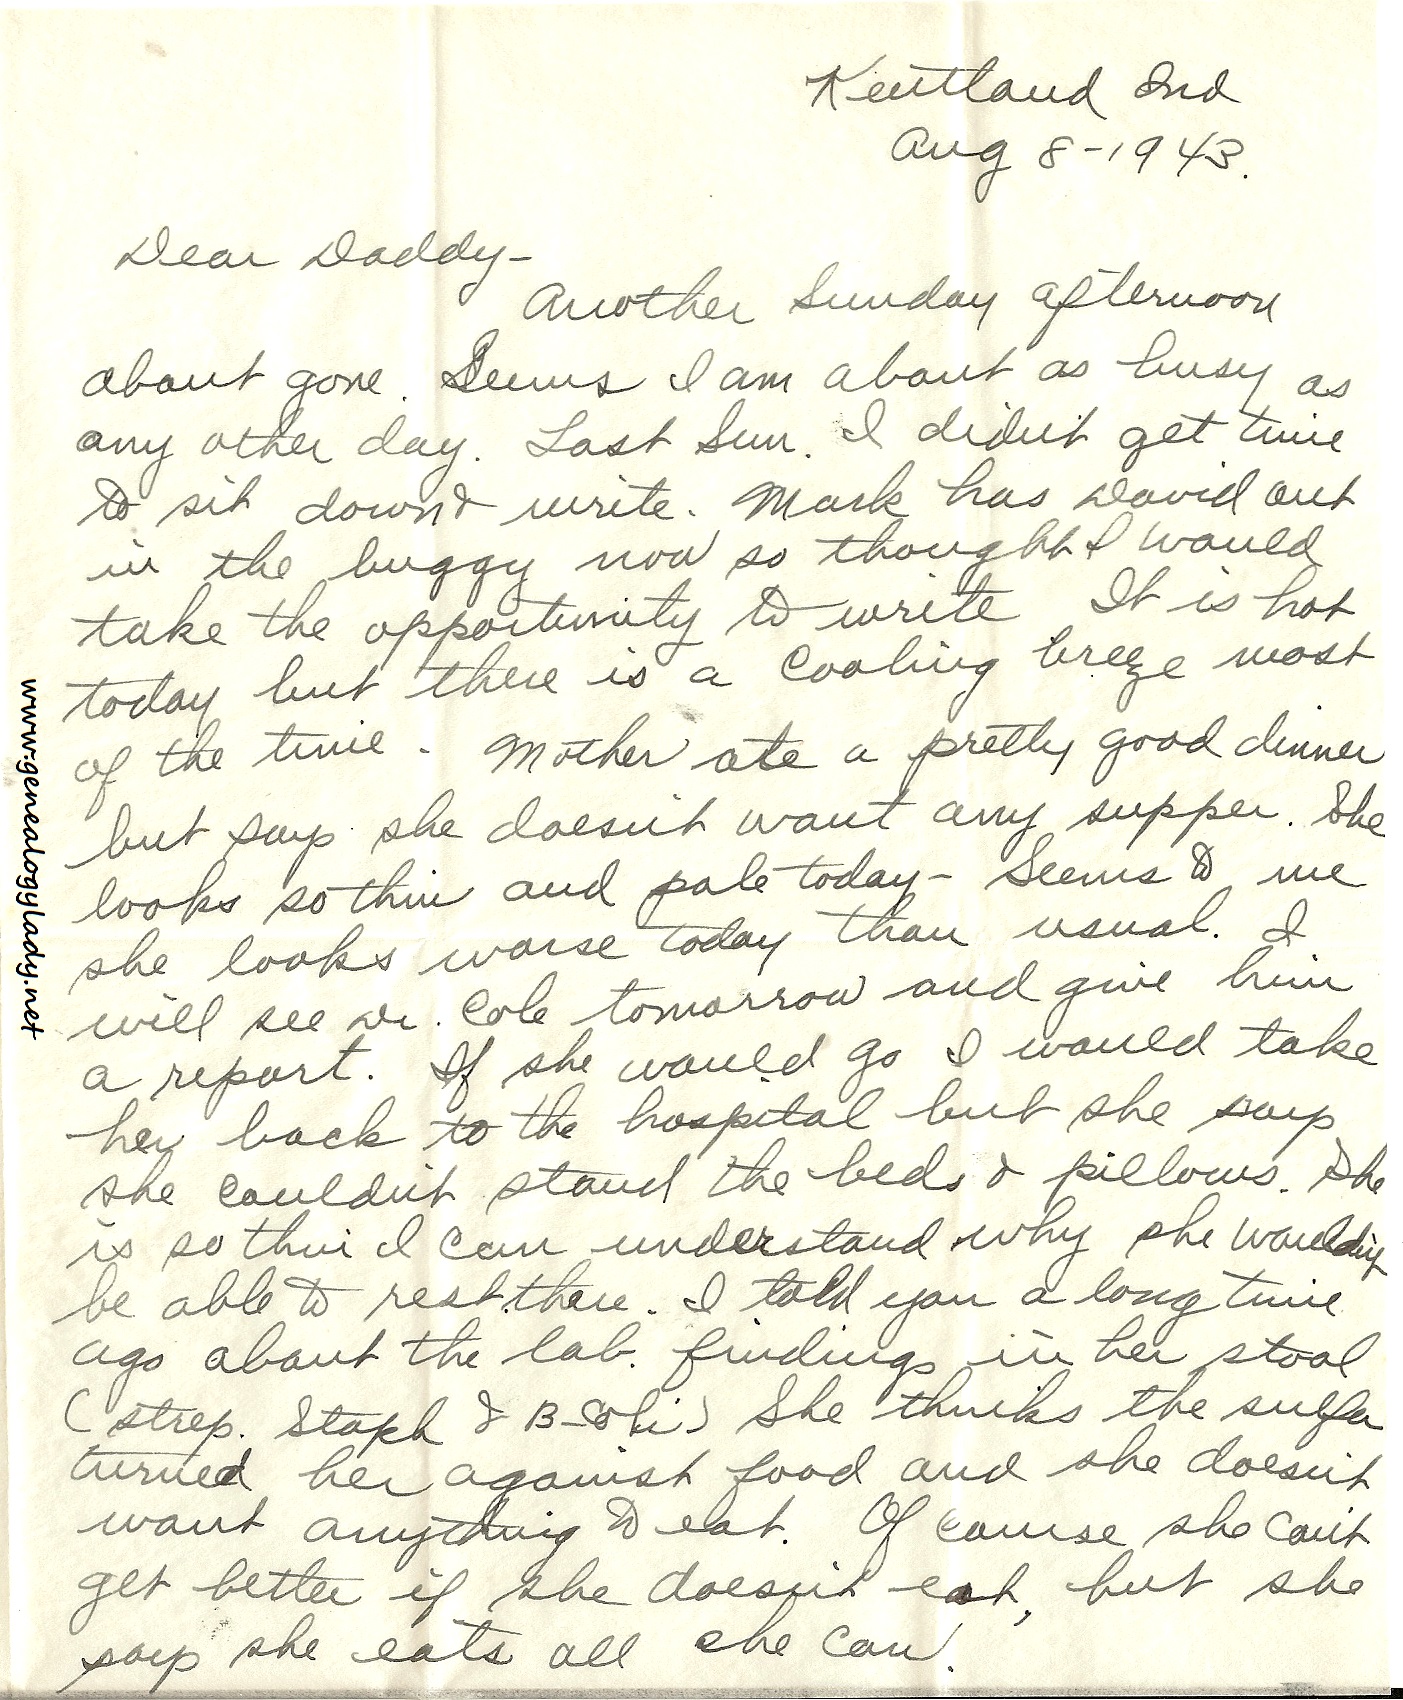 Kentland Ind
Aug 8-1943.
Dear Daddy-
Another Sunday afternoon
about gone. Seems I am about as busy as
any other day. Last Sun. I didn't get time
to sit down & write. Mark has David out
in the buggy now so thought I would
take the opportunity to write It is hot
today but there is a cooling breeze most
of the time. Mother ate a pretty good dinner
but says she doesn't want any supper. She
looks so thin and pale today- Seems to me
she looks worse today than usual. I
will see Dr. Cole tomorrow and give him
a report. If she would go I would take
her back to the hospital but she says
she couldn't stand the beds & pillows. She
is so thin I can understand why she wouldn't
be able to rest there. I told you a long time
ago about the lab. findings in her stool
(strep. Staph & B-Coli) She thinks the sulfa
turned her against food and she doesn't
want anything to eat. Of course she can't
get better if she doesn't eat, but she
says she eats all she can.
www.genealogylady.net